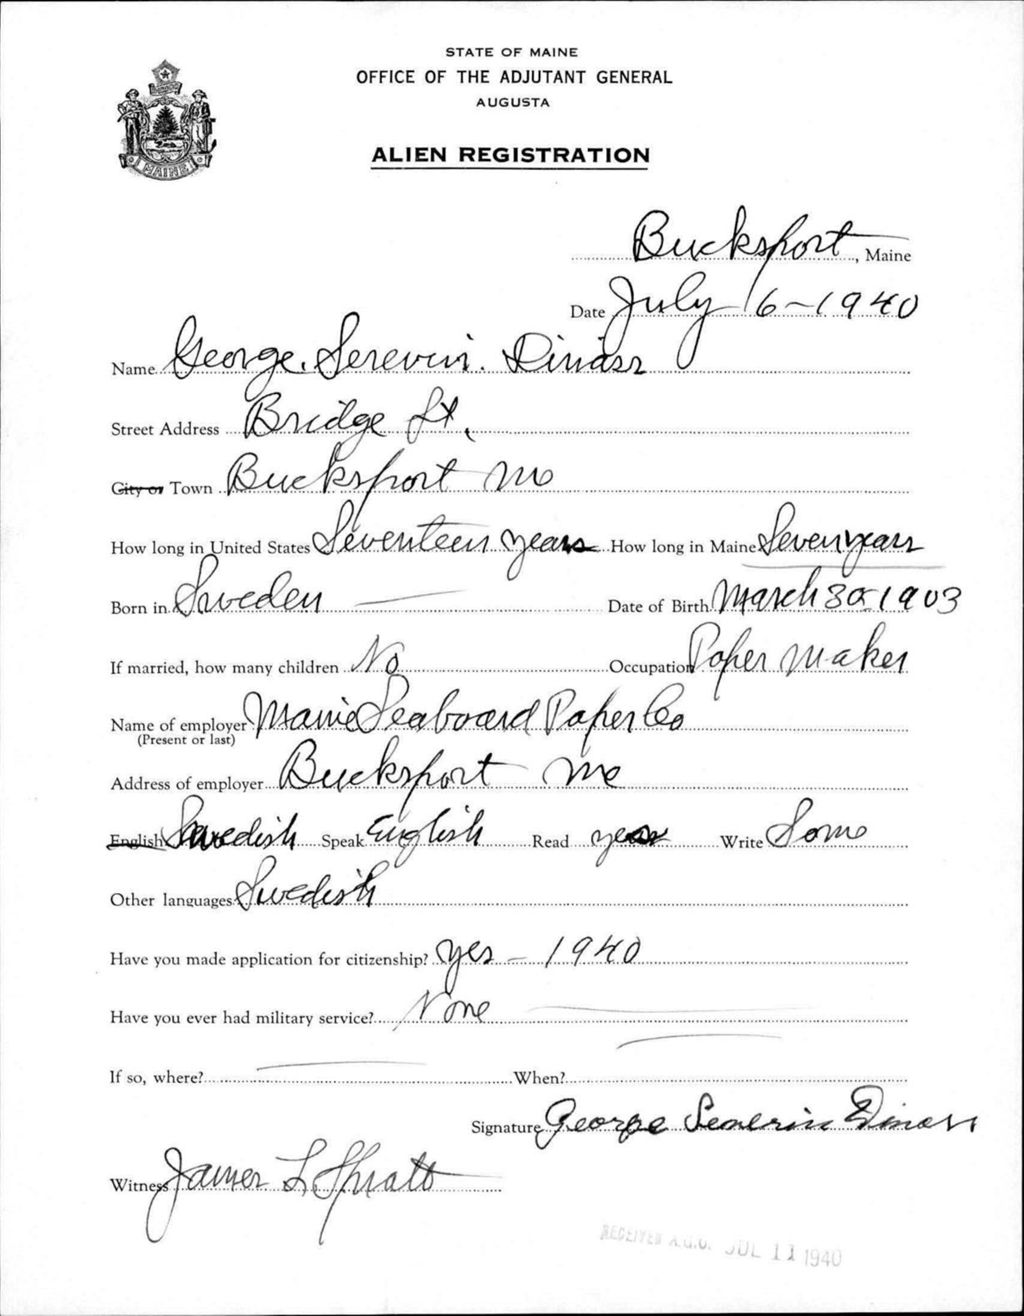 STATE OF MAINE
OFFICE OF THE ADJUTANT GENERAL
AUGUSTA
ALIEN REGISTRATION
MAINE
Bucksport, Maine
Date July 6-1940
Name George. Severin.
Street Address Bridge St.
City or Town Bucksport Me
How long in United States Seventeen years How long in Maine Seven years
Born in Sweden Date of Birth March 30-1903
If married, how many children No Occupation Paper Maker
Name of employer Maine Seaboard Paper Co
(Present or last)
Address of employer Bucksport Me
English Swedish Speak English Read yes Write Some
Other languages Swedish
Have you made application for citizenship? Yes - 1940
Have you ever had military service? None
If so, where? When?
Signature George Severin
Witness James L Spratt
RECEIVED A.G.O. JUL 11 1940